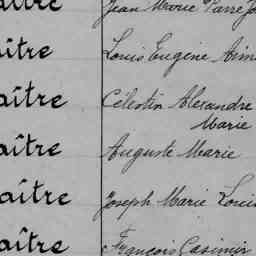 aître Jean Marie Pierre Jo
aître Louis Eugène Aim
aître Célestin Alexandre
Marie
aître Auguste Marie
aître Joseph Marie Loui
aître François Casimir